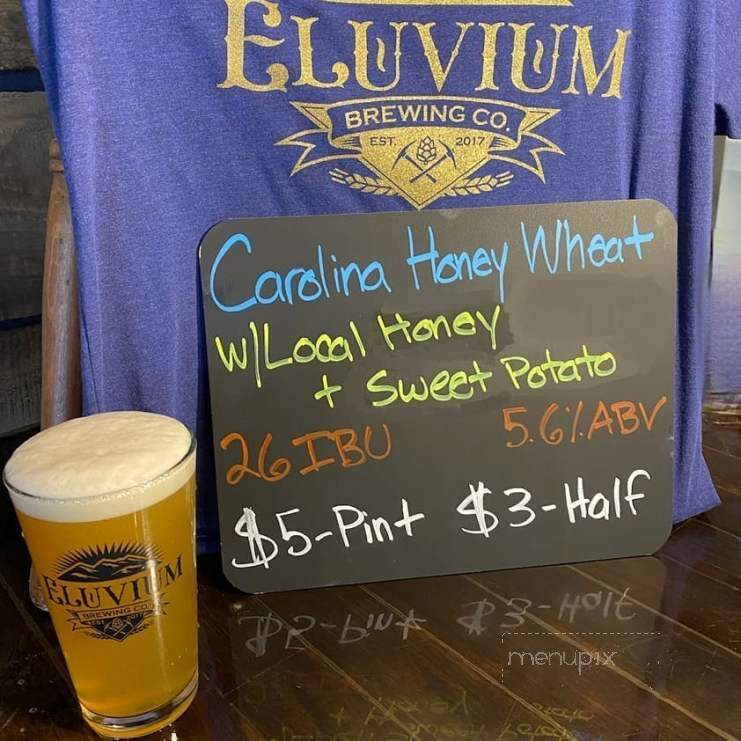 ELUVIUM
BREWING CO.
EST. 2017
Carolina Honey Wheat
W/Local Honey
+ Sweet Potato
26 IBU 5.6% ABV
$5-Pint $3-Half
ELUVIUM
BREWING CO.
EST 2017
menupix